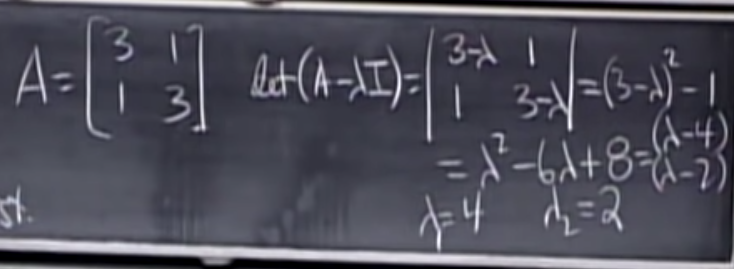 A = [3 1; 1 3] det(A-λI) = |3-λ 1; 1 3-λ| = (3-λ)² - 1
= λ² - 6λ + 8 = (λ-4)(λ-2)
λ₁ = 4 λ₂ = 2